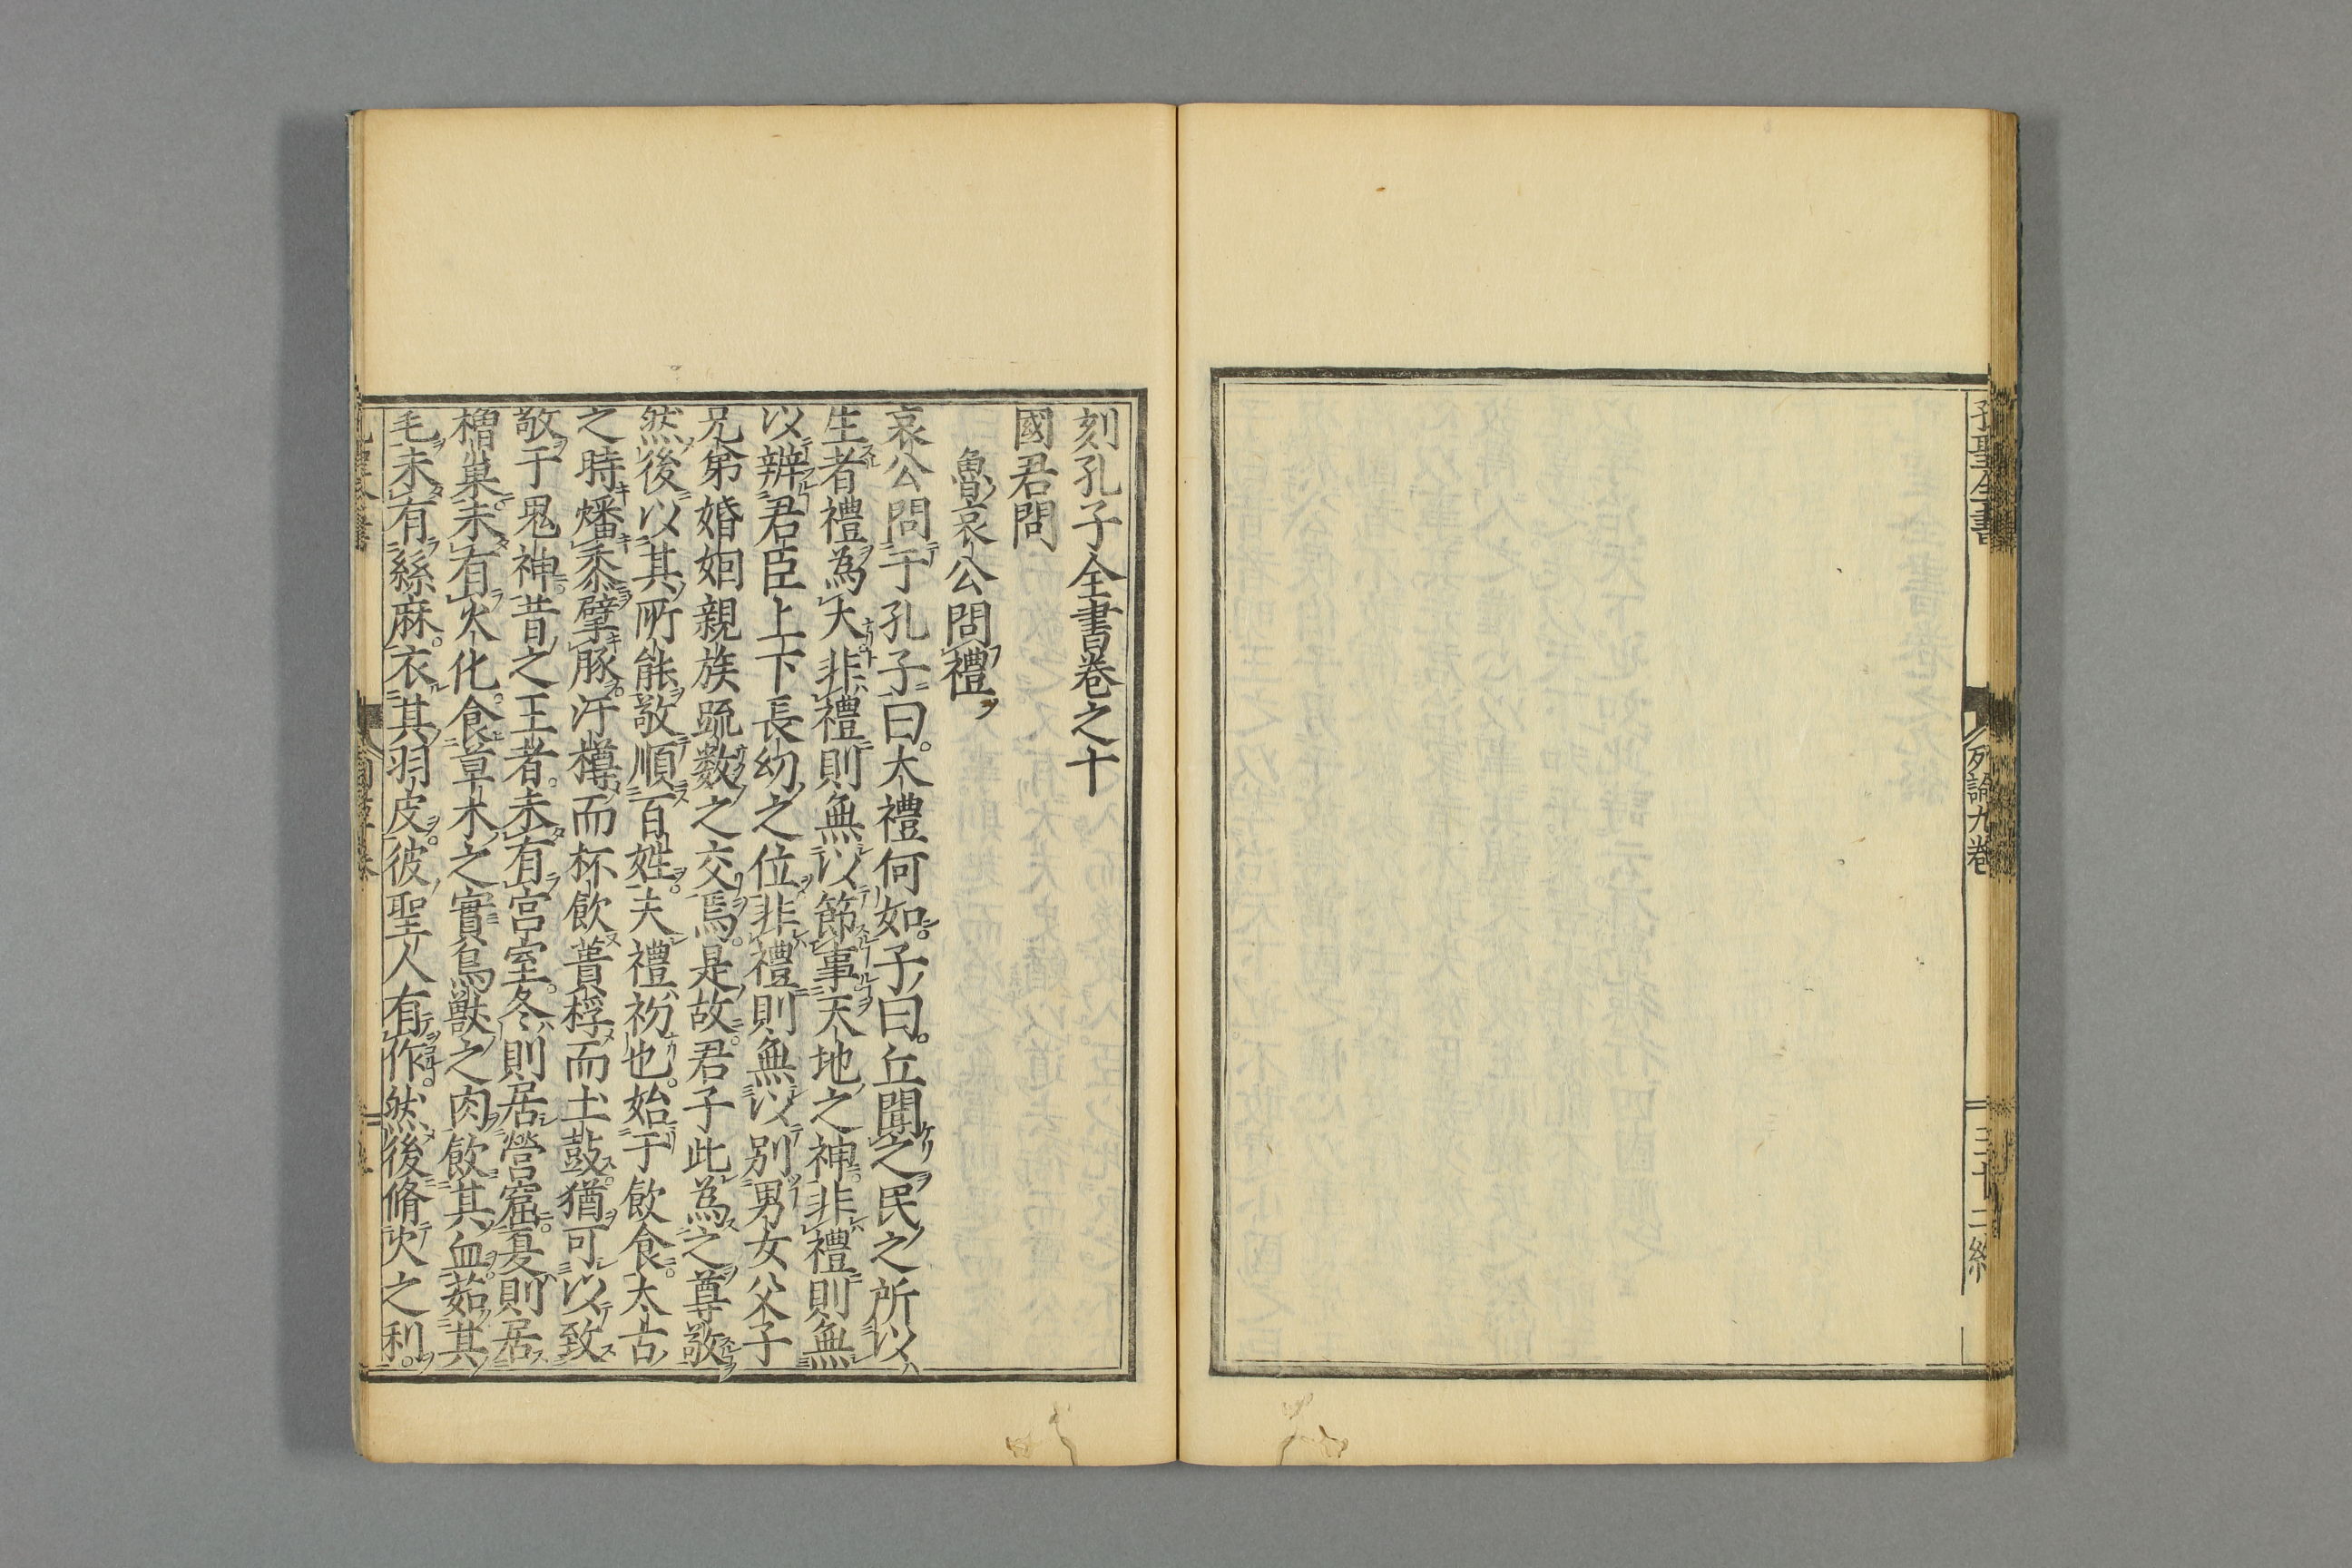 孔聖全書
列論九巻
三十二終
刻孔子全書巻之十
國君問
魯哀公問禮
哀公問于孔子曰。大禮何如。子曰。丘聞之民之所以
生者禮為大非禮則無以節事天地之神非禮則無
以辨君臣上下長幼之位非禮則無以別男女父子
兄弟婚姻親族疏數之交焉。是故君子此為之尊敬
然後以其所能敬順百姓。夫禮初也。始于飲食。太古
之時燔黍擘豚汙樽而杯飲蕢桴而土鼓。猶可以致
敬于鬼神。昔之王者。未有宮室。冬則居營窟。夏則居
櫓巢。未有火化。食草木之實鳥獸之肉飲其血。茹其
毛未有絲麻。衣其羽皮。彼聖人有作。然後脩火之利。